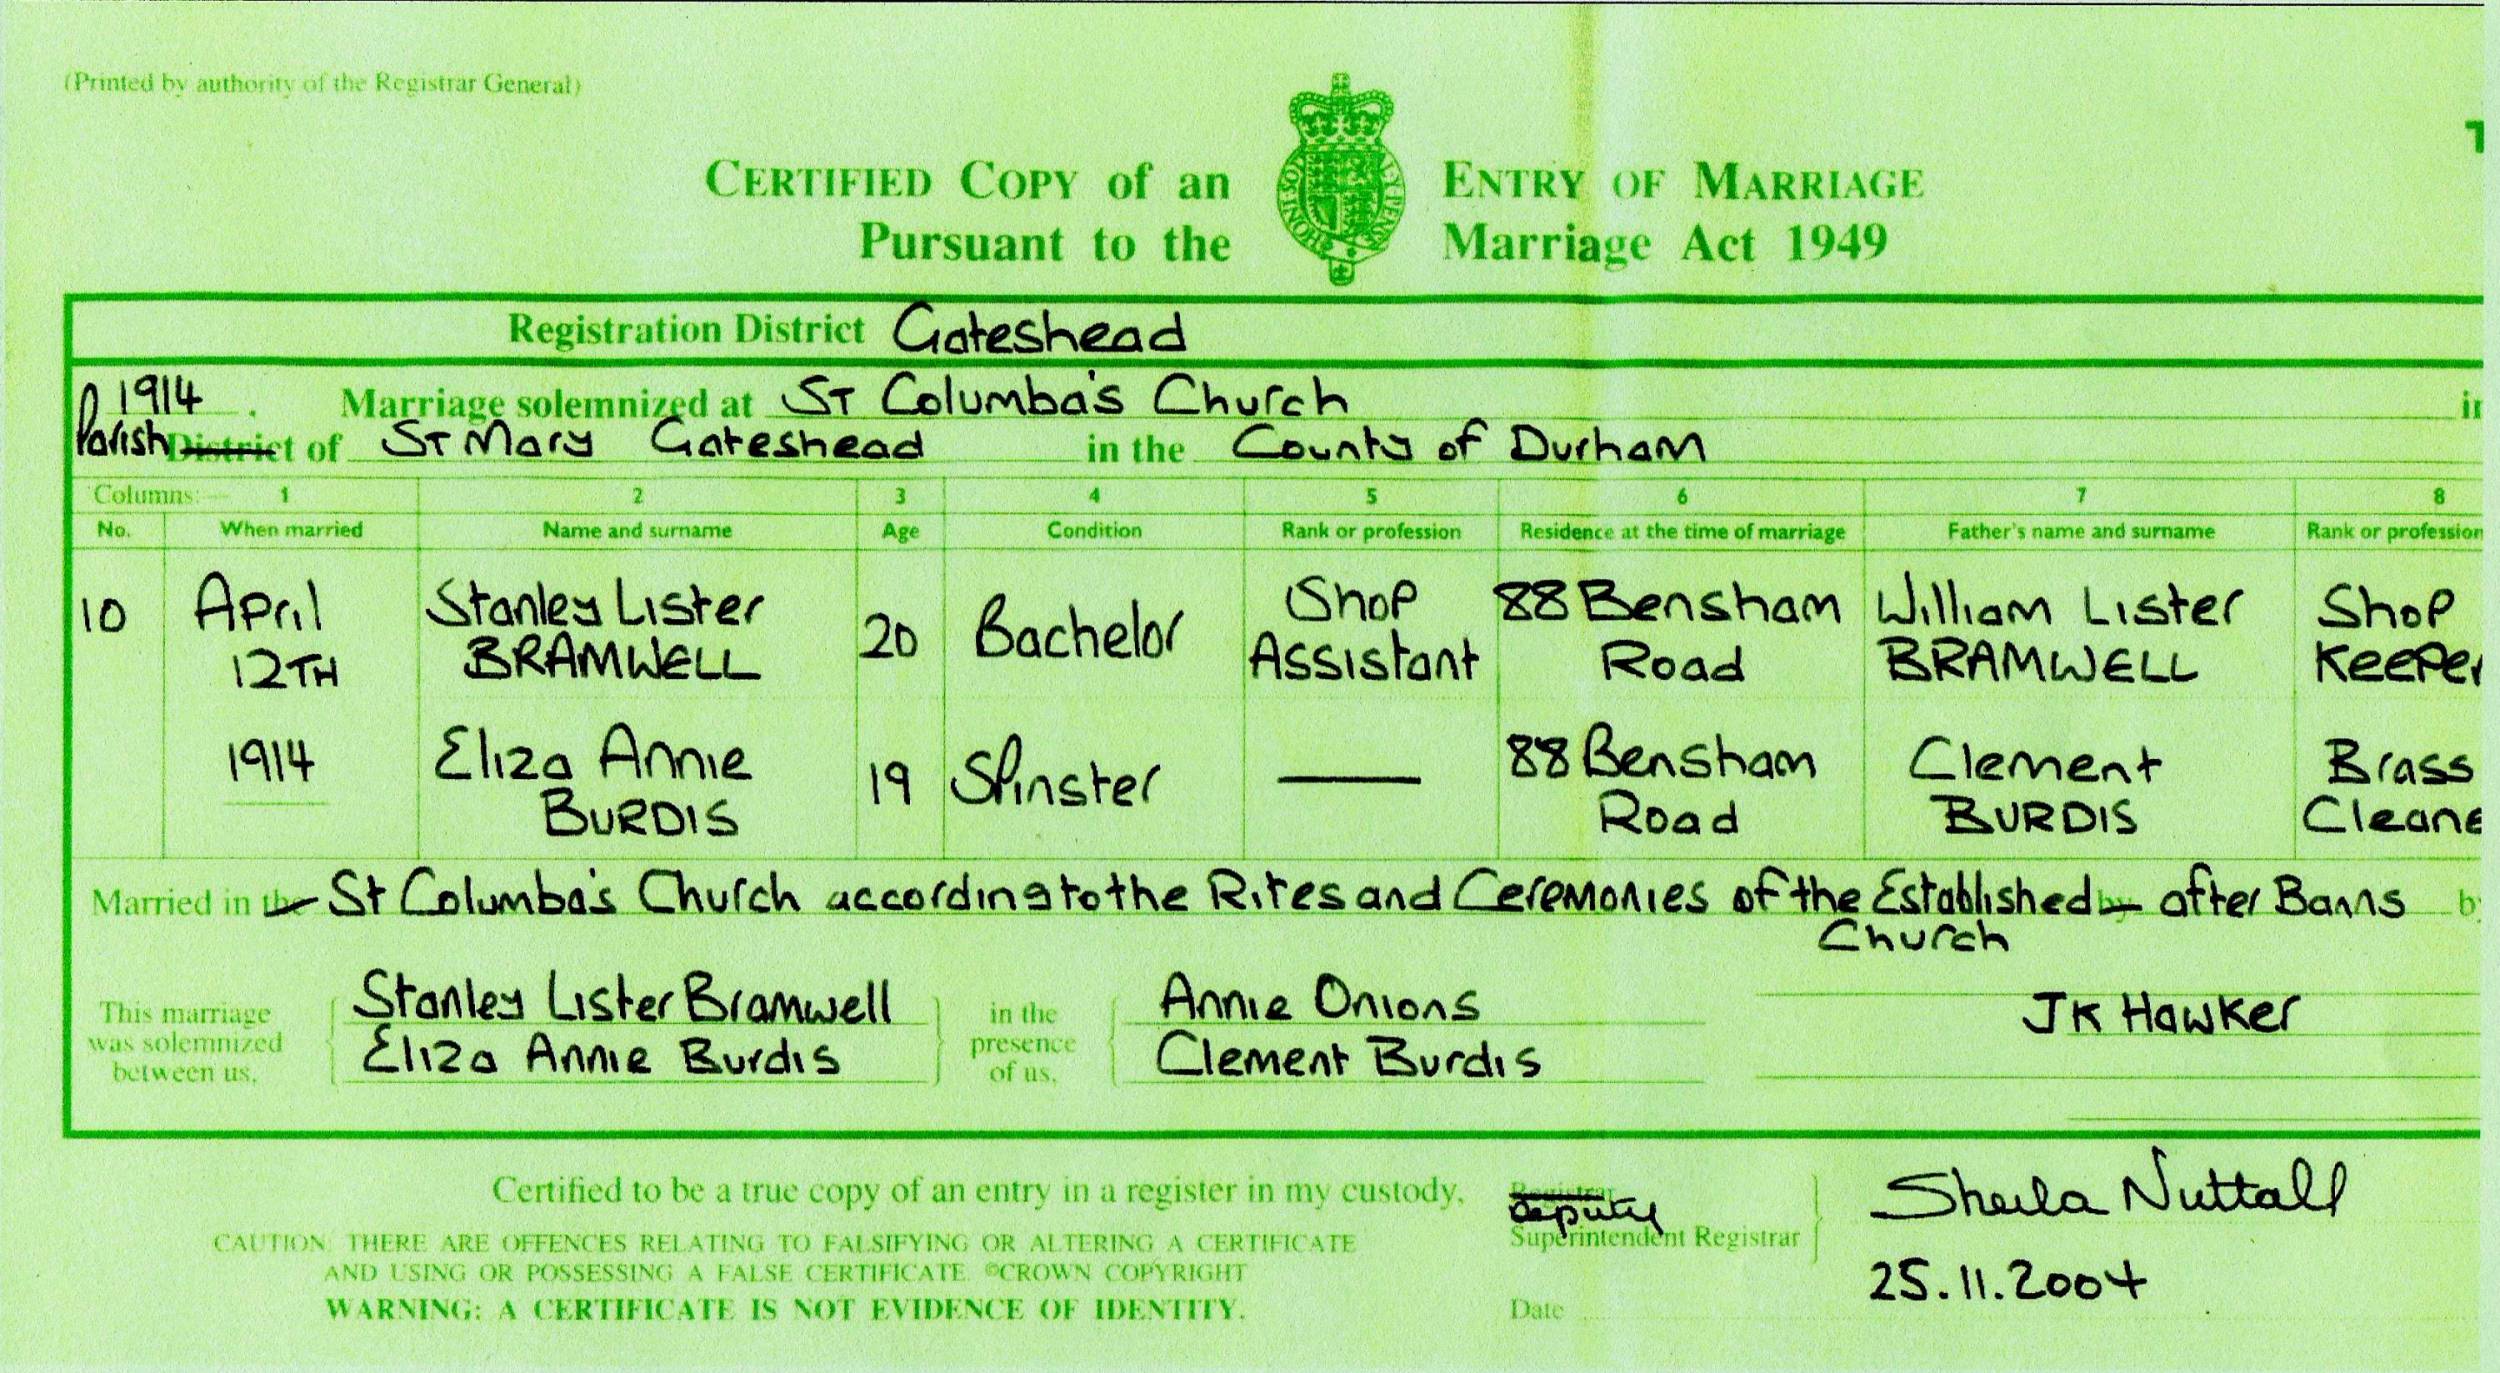 (Printed by authority of the Registrar General)
CERTIFIED COPY of an ENTRY OF MARRIAGE
Pursuant to the Marriage Act 1949
Registration District Gateshead
1914. Marriage solemnized at ST Columba's Church
Parish District of ST Mary Gateshead in the County of Durham
Columns:— 1 2 3 4 5 6 7 8
No. When married Name and surname Age Condition Rank or profession Residence at the time of marriage Father's name and surname Rank or profession
10 April Stanley Lister 20 Bachelor Shop 88 Bensham William Lister Shop
12TH BRAMWELL Assistant Road BRAMWELL Keeper
1914 Eliza Annie 19 Spinster — 88 Bensham Clement Brass
BURDIS Road BURDIS Cleane
Married in the St Columba's Church according to the Rites and Ceremonies of the Established by after Banns
Church
This marriage was solemnized between us, Stanley Lister Bramwell in the presence of us, Annie Onions JK Hawker
Eliza Annie Burdis Clement Burdis
Certified to be a true copy of an entry in a register in my custody, Registrar Sheila Nuttall
Deputy
Superintendent Registrar
CAUTION: THERE ARE OFFENCES RELATING TO FALSIFYING OR ALTERING A CERTIFICATE
AND USING OR POSSESSING A FALSE CERTIFICATE. ©CROWN COPYRIGHT
WARNING: A CERTIFICATE IS NOT EVIDENCE OF IDENTITY.
Date 25.11.2004